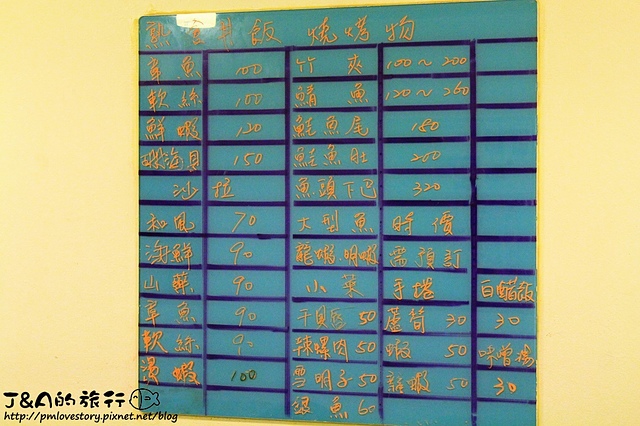 飯 燒烤物
章魚 100 竹夾 100~200
軟絲 100 鯖魚 120~260
鮮蝦 120 鮭魚尾 180
150 鮭魚肚 200
沙拉 魚頭下巴 320
和風 70 大型魚 時價
海鮮 90 龍蝦.明蝦 需預訂
山藥 90 小菜 手塔 白醋飯
章魚 90 干貝唇 50 蘆筍 30 30
軟絲 90 辣螺肉 50 蝦 50 味噌湯
蝦 100 雪明子 50 龍蝦 50 30
銀魚 60
J&A的旅行
http://pmlovestory.pixnet.net/blog